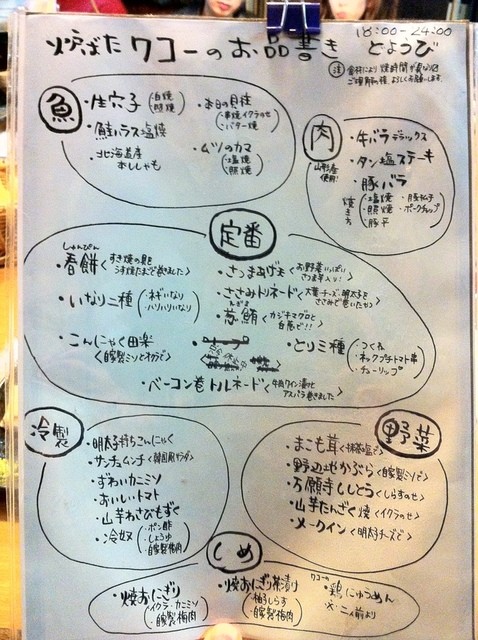 18:00-24:00
炉ばたワコーのお品書き どようび
注 食材により焼時間が異なる為
ご理解の程、よろしくお願いします。
魚
・生穴子(白焼 照焼)
・鮭ハラス塩焼
・北海道産
おししゃも
・本日の貝柱
(串焼イクラのせ
・バター焼)
・ムツのカマ
(塩焼
照焼)
肉
山形産
使用!
・牛バラデラックス
・タン塩ステーキ
・豚バラ
焼き方
(・塩焼 ・豚キムチ
・照焼 ・ポークチャップ
・豚平)
定番
・春餅<すき焼の具を
うす焼たまごで巻きました>
しゅんぴん
・いなり二種(・ネギいなり
・パリパリいなり)
・こんにゃく田楽
<自家製ミソとカラシで>
・さつまあげ<お野菜いっぱい
さつま芋入り!>
・ささみトルネード<大葉・チーズ・明太子を
ささみで巻いたやつ>
・葱鮪<カジキマグロと
白葱で!!>
・とり三種(・つくね
・ネックプチトマト串
・チューリップ)
・ベーコン巻トルネード<牛肉ワイン漬けと
アスパラ巻きました>
冷製
・明太子持ちこんにゃく
・サンチュムンチ<韓国風サラダ>
・ずわいカニミソ
・おいしいトマト
・山芋わさびもずく
・冷奴(・ポン酢
・しょうゆ
・自家製梅肉)
野菜
・まこも茸<抹茶塩で>
・野辺地かぶら<自家製ミソで>
・万願寺ししとう<しらすのせ>
・山芋たんざく焼<イクラのせ>
・メークイン<明太チーズで>
しめ
・焼おにぎり
(イクラ・カニミソ
・自家製梅肉)
・焼おにぎり茶漬け
(柚子しらす
・自家製梅肉)
ワコーの
・鶏にゅうめん
※二人前より